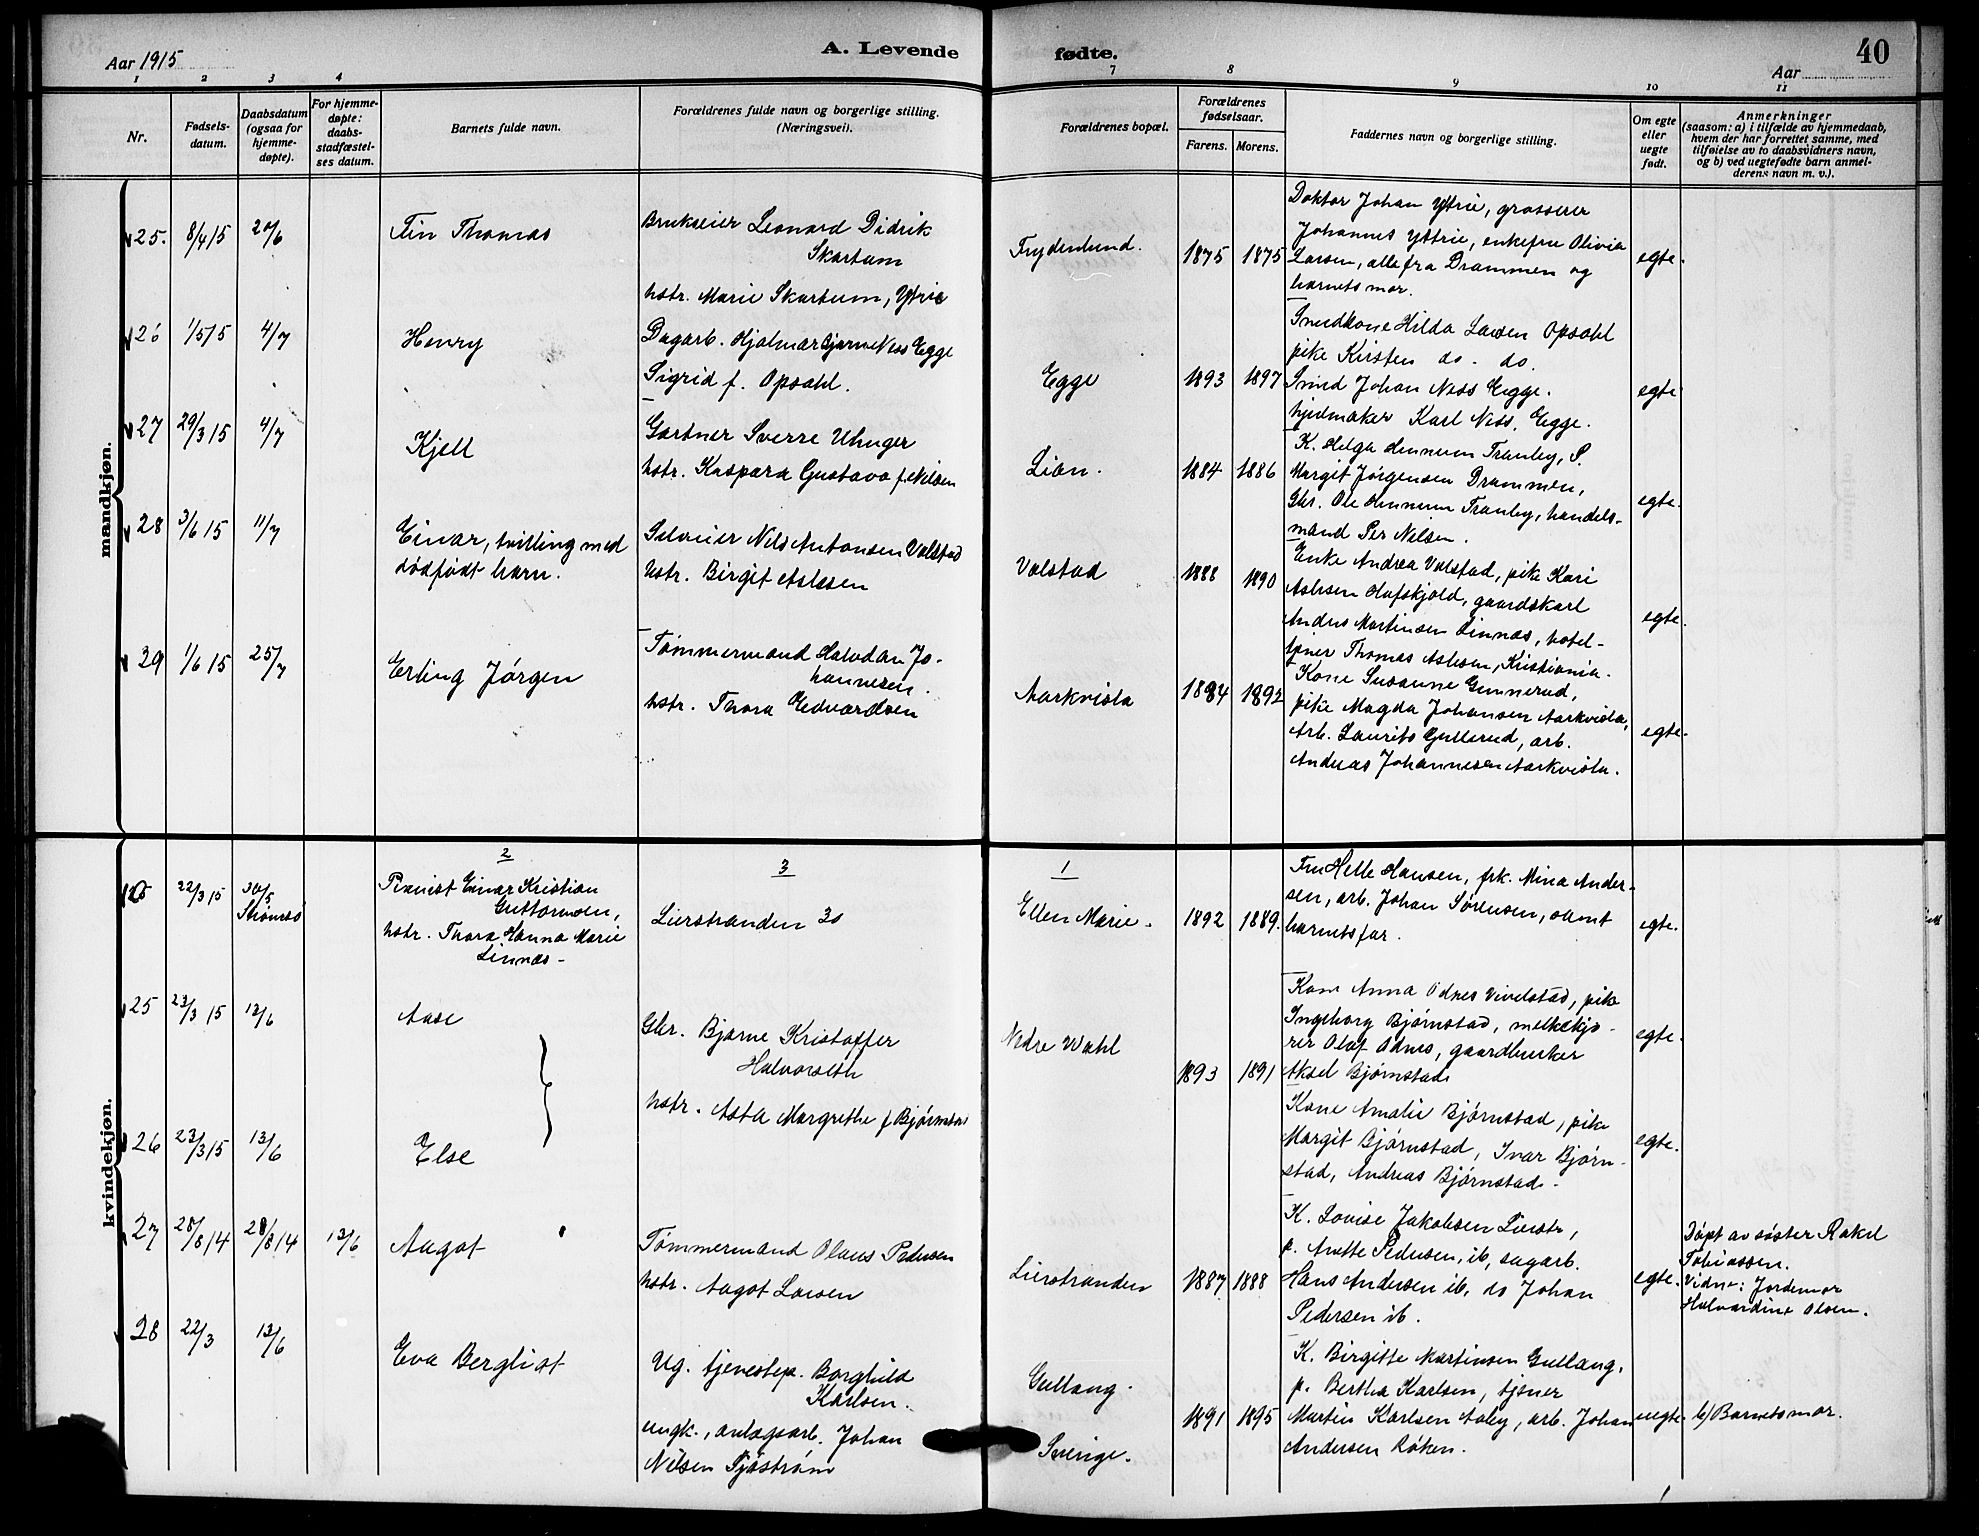 Aar 1915
A. Levende
fødte.
40
Aar
1 2 3 4
7 8 9 10 11
Nr.
Fødsels-
datum.
Daabsdatum
(ogsaa for
hjemme-
døpte).
For hjemme-
døpte:
daabs-
stadfæstel-
ses datum.
Barnets fulde navn.
Forældrenes fulde navn og borgerlige stilling.
(Næringsvei).
Forældrenes bopæl.
Forældrenes
fødselsaar.
Farens. Morens.
Faddernes navn og borgerlige stilling.
Om egte
eller
uegte
født.
Anmerkninger
(saasom: a) i tilfælde av hjemmedaab,
hvem der har forrettet samme, med
tilføielse av to daabsvidners navn,
og b) ved uegtefødte barn anmel-
derens navn m. v.).
mandkjøn.
25. 8/4 15 20/6
Finn Thomas
Brukseier Leonard Didrik
Skartum
hstr. Marie Skartum, Yttrie
Frydenlund.
1875 1875
Doktor Johan Yttrie, grosserer
Johannes Yttrie, enkefru Olivia
Larsen, alle fra Drammen og
barnets mor.
egte.
26 1/5 15 4/7
Henry
Dagarb. Hjalmar Bjarne Ness Egge
Sigrid f. Opsahl.
Egge
1893 1897
Smedkone Hilda Larsen Opsahl
pike Kirsten do. do.
Smed Johan Ness Egge.
hjulmaker Karl Ness, Egge.
egte
27 29/3 15 4/7
Kjell
Gartner Sverre Uhnger
hstr. Kaspara Gustava f. Nilsen
Lian.
1884 1886
K. Helga Amnerum Tranby, S.
Margit Jørgensen Drammen,
Gbr. Ole Amnerum Tranby, handels-
mand Per Nilsen.
egte.
28 3/6 15 11/7
Einar, tvilling med
dødfødt barn.
Selveier Nils Antonsen Valstad
hstr. Birgit Aslesen
Valstad
1888 1890
Enke Andrea Valstad, pike Kari
Aslesen Olafskjold, gaardskarl
Anders Martinsen Linnes, hotel-
tjener Thomas Aslesen, Kristiania.
egte.
29 1/6 15 25/7
Erling Jørgen
Tømmermand Halvdan Jo-
hannesen.
hstr. Thora Edvardsen
Aarkvisla
1884 1892
Kone Susanne Gunnerud,
pike Magda Johansen Aarkvisla,
Arb. Laurits Gullerud, arb.
Andreas Johannesen Aarkvisla.
egte.
kvindekjøn.
2
3
1
22/3 15 30/5
Strømsø
Pianist Einar Kristian
Guttormsen,
hstr. Thora Hanna Marie
Linnes -
Lierstranden 30
Ellen Marie.
1892 1889.
Fru Helle Hansen, frk. Mina Ander-
sen, arb. Johan Sørensen, samt
barnets far.
egte.
25 23/3 15 13/6
Aase
Gbr. Bjarne Kristoffer
Halvorseth
hstr. Asta Margrethe f. Bjørnstad
Nedre Wahl
1893 1891
Kone Anna Odnes Vivelstad, pike
Ingeborg Bjørnstad, melkekjø-
rer Olaf Odnes, gaardbruker
Aksel Bjørnstad.
egte.
26 23/3 15 13/6
Else
Kone Amalie Bjørnstad, pike
Margit Bjørnstad, Ivar Bjørn-
stad, Andreas Bjørnstad.
egte.
27 28/8 14 28/8 14 13/6
Aagot
Tømmermand Olaus Pedersen
hstr. Aagot Larsen
Lierstranden
1887 1888
K. Lovise Jakobsen Lierstr,
p. Anette Pedersen, ib, sagarb.
Hans Andersen ib, do Johan
Pedersen ib.
egte.
Døpt av søster Rakel
Tobiassen.
Vidne: Jordemor
Halvardine Olsen.
28 22/3 13/6
Eva Bergliot
Ug. tjenestep. Borghild
Karlsen.
ungk., anlægsarb. Johan
Nilsen Sjøstrøm
Gullaug.
Sverige.
1891 1895
K. Birgitte Martinsen Gullaug.
p. Bertha Karlsen, tjener
Martin Karlsen Aaby, arb. Johan
Andersen Røken.
uegte.
b) Barnets mor.